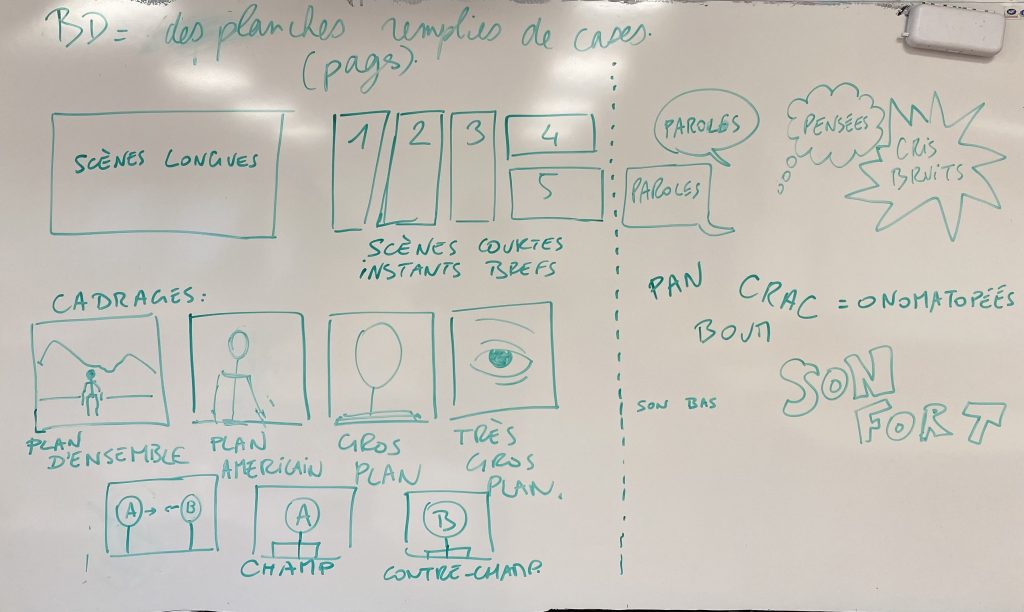 BD = des planches remplies de cases.
(pages).
SCÈNES LONGUES
1 2 3 4
5
SCÈNES COURTES
INSTANTS BREFS
CADRAGES:
PLAN
D'ENSEMBLE
PLAN
AMERICAIN
GROS
PLAN
TRÈS
GROS
PLAN.
A → ← B
A
CHAMP
B
CONTRE-CHAMP
PAROLES
PAROLES
PENSÉES
CRIS
BRUITS
PAN CRAC = ONOMATOPÉÉS
BOUM
SON BAS
SON
FORT